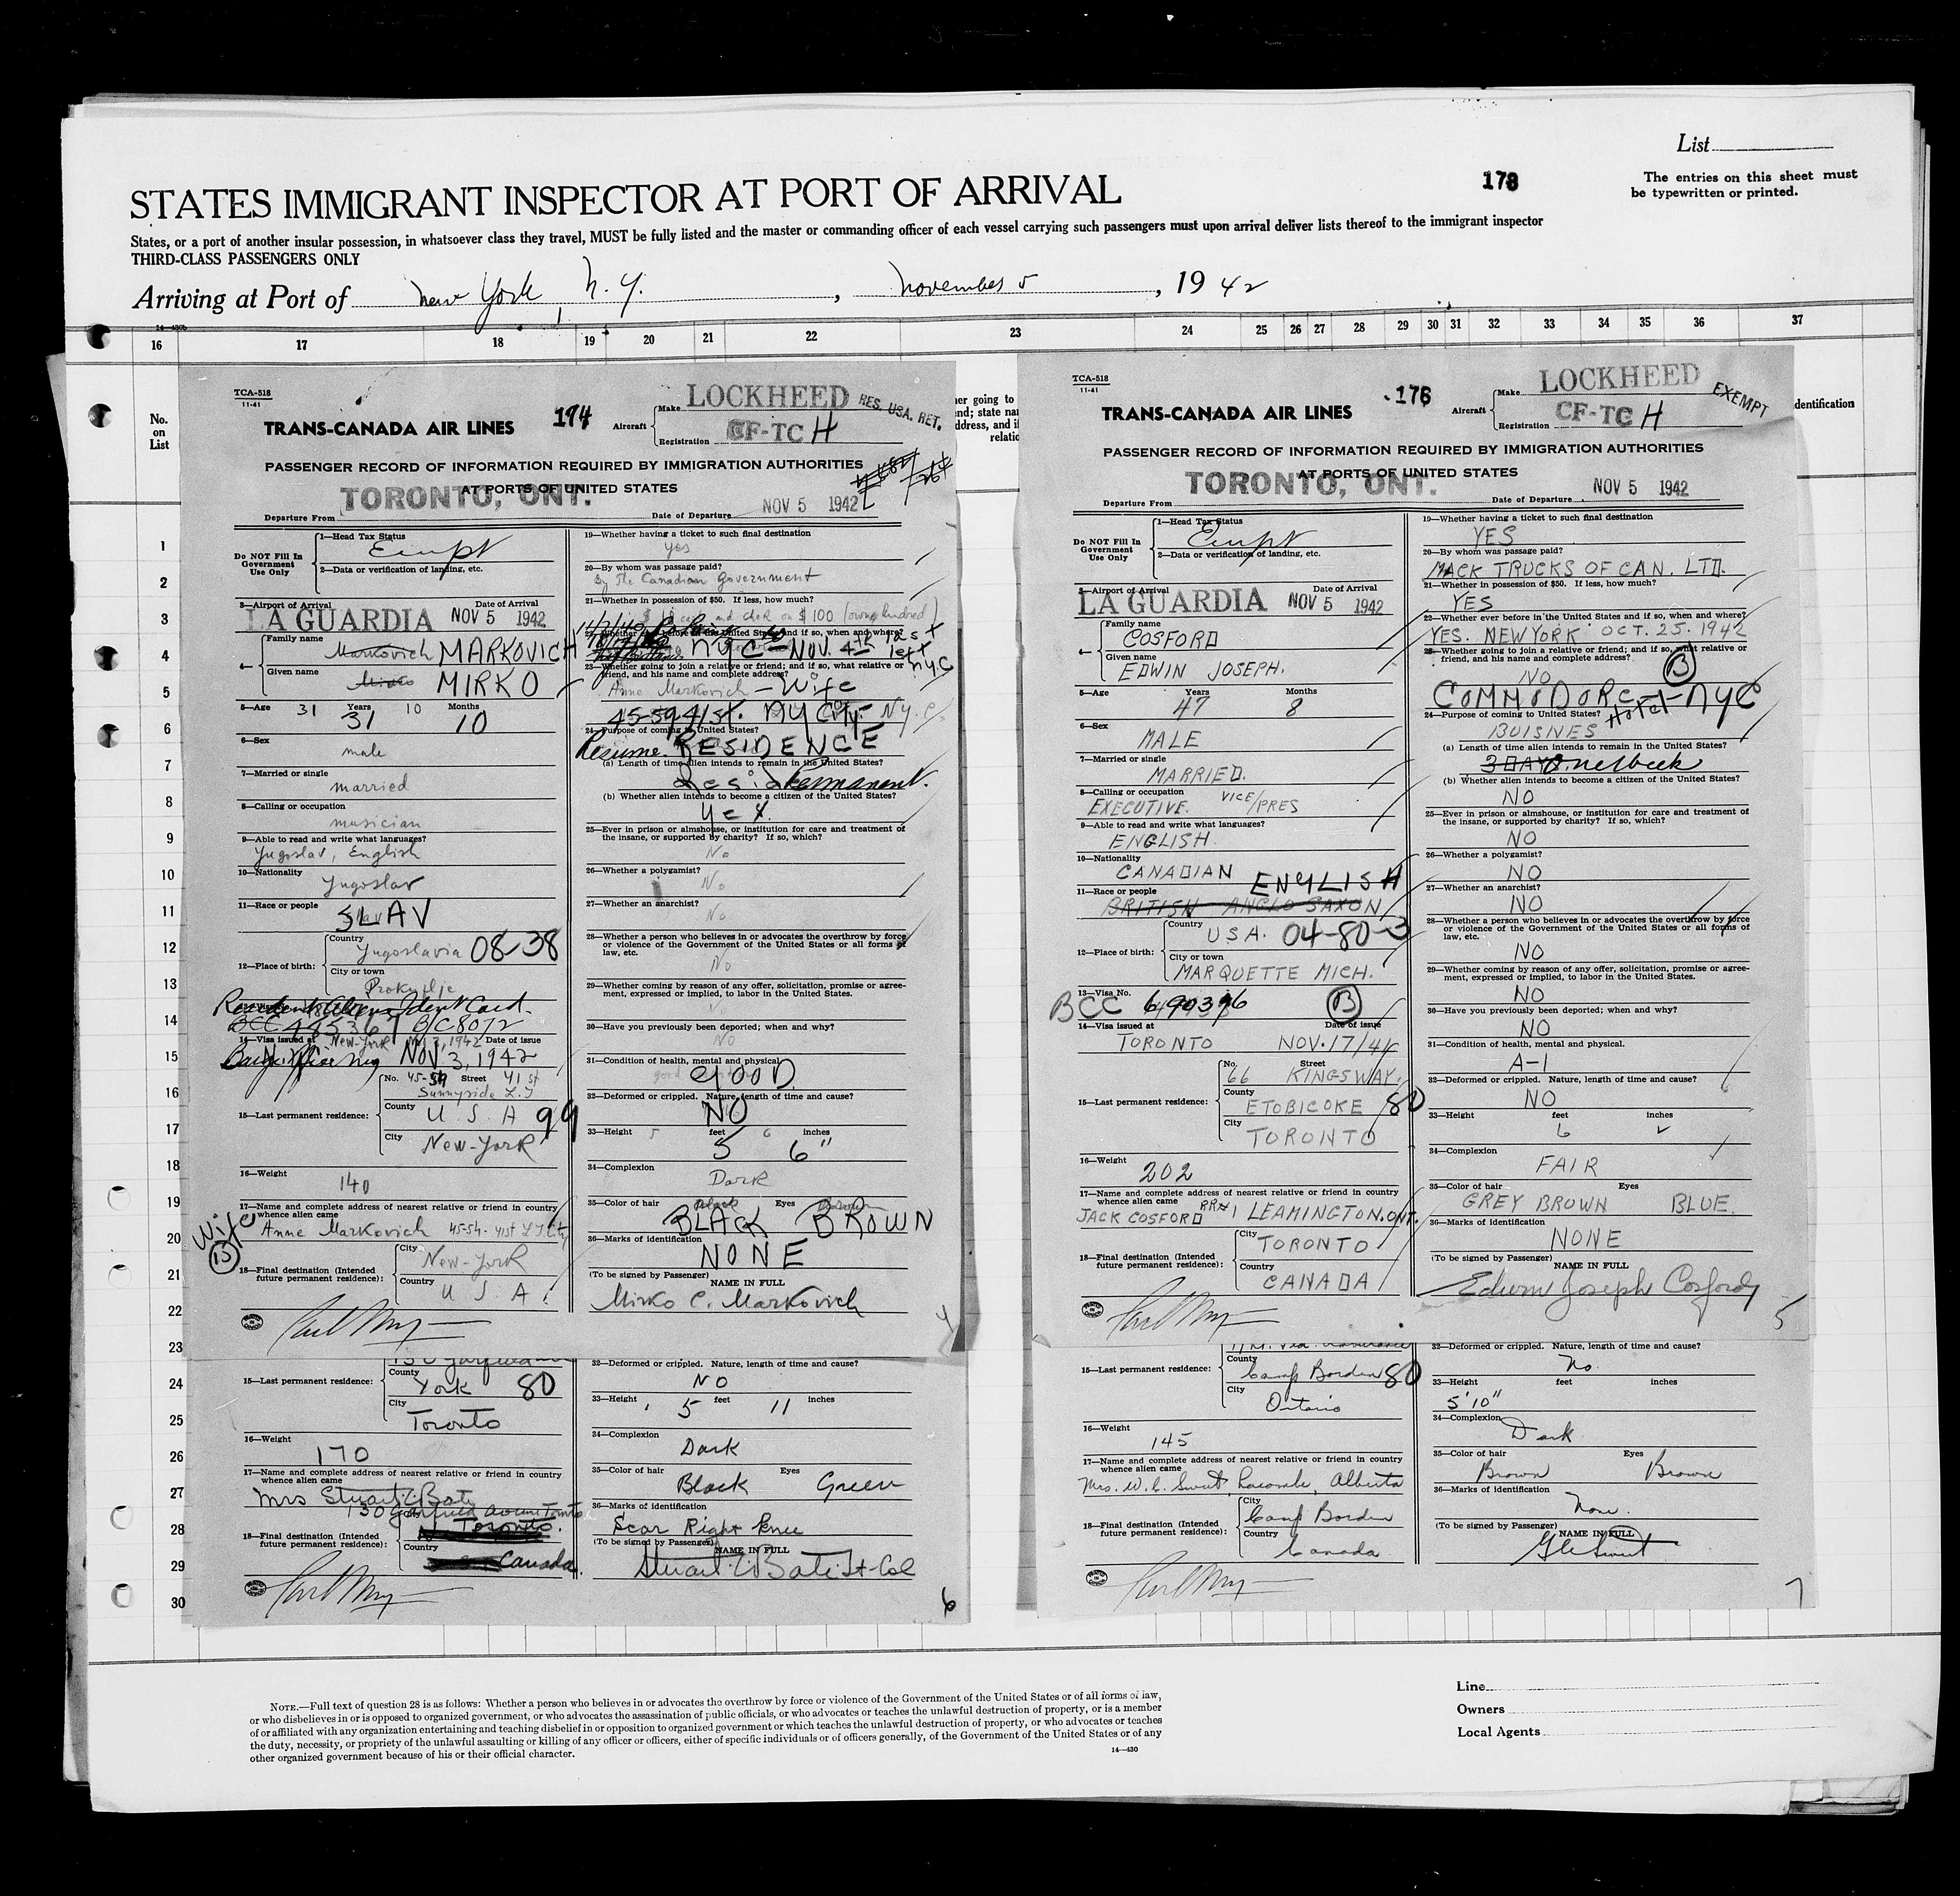 List
178
The entries on this sheet must
be typewritten or printed.
STATES IMMIGRANT INSPECTOR AT PORT OF ARRIVAL
States, or a port of another insular possession, in whatsoever class they travel, MUST be fully listed and the master or commanding officer of each vessel carrying such passengers must upon arrival deliver lists thereof to the immigrant inspector
THIRD-CLASS PASSENGERS ONLY
Arriving at Port of New York, N.Y., November 5, 1942
16 17 18 19 20 21 22 23 24 25 26 27 28 29 30 31 32 33 34 35 36 37
No.
on
List
1
2
3
4
5
6
7
8
9
10
11
12
13
14
15
16
17
18
19
20
21
22
23
24
25
26
27
28
29
30
TCA-518
11-41
TRANS-CANADA AIR LINES 174
Aircraft
Make LOCKHEED RES. USA. RET.
Registration CF-TC H
PASSENGER RECORD OF INFORMATION REQUIRED BY IMMIGRATION AUTHORITIES
AT PORTS OF UNITED STATES
Departure From TORONTO, ONT. Date of Departure NOV 5 1942
Do NOT Fill In
Government
Use Only
1—Head Tax Status
2—Data or verification of landing, etc.
3—Airport of Arrival Date of Arrival
LA GUARDIA NOV 5 1942
4— Family name Markovich MARKOVICH
Given name Mirko MIRKO
5—Age 31 Years 10 Months
31 10
6—Sex
male
7—Married or single
married
8—Calling or occupation
musician
9—Able to read and write what languages?
Yugoslav, English
10—Nationality
Yugoslav
11—Race or people
SLAV
12—Place of birth:
Country
Yugoslavia 08-38
City or town
Prokuplje
Resident Aliens Ident Card.
14—Visa issued at New-York Date of issue
NOV 3, 1942
15—Last permanent residence:
No. 45-59 Street 41 st
Sunnyside L.I
County
U S A 99
City
New-York
16—Weight
140
17—Name and complete address of nearest relative or friend in country
whence alien came
Wife
Anne Markovich
18—Final destination (Intended
future permanent residence):
City
New-York
Country
U S A
19—Whether having a ticket to such final destination
yes
20—By whom was passage paid?
By the Canadian government
21—Whether in possession of $50. If less, how much?
NYC — Nov. 4th left NYC
23—Whether going to join a relative or friend; and if so, what relative or
friend, and his name and complete address?
Anne Markovich — Wife
45-59 41 st. NY City N.Y.C.
24—Purpose of coming to United States?
Resume RESIDENCE
(a) Length of time alien intends to remain in the United States?
Permanent.
(b) Whether alien intends to become a citizen of the United States?
Yes.
25—Ever in prison or almshouse, or institution for care and treatment of
the insane, or supported by charity? If so, which?
No
26—Whether a polygamist?
No
27—Whether an anarchist?
No
28—Whether a person who believes in or advocates the overthrow by force
or violence of the Government of the United States or all forms of
law, etc.
No
29—Whether coming by reason of any offer, solicitation, promise or agree-
ment, expressed or implied, to labor in the United States.
No
30—Have you previously been deported; when and why?
No
31—Condition of health, mental and physical
GOOD
32—Deformed or crippled. Nature, length of time and cause?
NO
33—Height 5 feet 6 inches
5 6"
34—Complexion
Dark
35—Color of hair black Eyes brown
BLACK BROWN
36—Marks of identification
NONE
(To be signed by Passenger)
NAME IN FULL
Mirko C. Markovich
4
TCA-518
11-41
TRANS-CANADA AIR LINES 176
Aircraft
Make LOCKHEED EXEMPT
Registration CF-TC H
PASSENGER RECORD OF INFORMATION REQUIRED BY IMMIGRATION AUTHORITIES
AT PORTS OF UNITED STATES
Departure From TORONTO, ONT. Date of Departure NOV 5 1942
Do NOT Fill In
Government
Use Only
1—Head Tax Status
2—Data or verification of landing, etc.
3—Airport of Arrival Date of Arrival
LA GUARDIA NOV 5 1942
4— Family name
COSFORD
Given name
EDWIN JOSEPH.
5—Age Years Months
47 8
6—Sex
MALE
7—Married or single
MARRIED.
8—Calling or occupation
EXECUTIVE. VICE/PRES
9—Able to read and write what languages?
ENGLISH.
10—Nationality
CANADIAN
11—Race or people ENGLISH
BRITISH ANGLO SAXON
12—Place of birth:
Country
USA. 04-80-3
City or town
MARQUETTE MICH.
13—Visa No.
BCC
14—Visa issued at Date of issue
TORONTO NOV. 17/41
15—Last permanent residence:
No. Street
66 KINGSWAY.
County
ETOBICOKE 80
City
TORONTO
16—Weight
202
17—Name and complete address of nearest relative or friend in country
whence alien came
JACK COSFORD RR#1 LEAMINGTON. ONT.
18—Final destination (Intended
future permanent residence):
City
TORONTO
Country
CANADA
19—Whether having a ticket to such final destination
YES
20—By whom was passage paid?
MACK TRUCKS OF CAN. LTD.
21—Whether in possession of $50. If less, how much?
YES
22—Whether ever before in the United States and if so, when and where?
YES. NEW YORK OCT. 25. 1942
23—Whether going to join a relative or friend; and if so, what relative or
friend, and his name and complete address?
NO
COMMODORE Hotel - NYC
24—Purpose of coming to United States?
BUISNES
(a) Length of time alien intends to remain in the United States?
3 DAYS One Week
(b) Whether alien intends to become a citizen of the United States?
NO
25—Ever in prison or almshouse, or institution for care and treatment of
the insane, or supported by charity? If so, which?
NO
26—Whether a polygamist?
NO
27—Whether an anarchist?
NO
28—Whether a person who believes in or advocates the overthrow by force
or violence of the Government of the United States or all forms of
law, etc.
NO
29—Whether coming by reason of any offer, solicitation, promise or agree-
ment, expressed or implied, to labor in the United States.
NO
30—Have you previously been deported; when and why?
NO
31—Condition of health, mental and physical.
A-1
32—Deformed or crippled. Nature, length of time and cause?
NO
33—Height feet inches
6
34—Complexion
FAIR
35—Color of hair Eyes
GREY BROWN BLUE.
36—Marks of identification
NONE
(To be signed by Passenger)
NAME IN FULL
Edwin Joseph Cosford
5
15—Last permanent residence:
County
York 80
City
Toronto
16—Weight
170
17—Name and complete address of nearest relative or friend in country
whence alien came
Mrs Stuart C Bate
130 Garfield Avenue Toronto
18—Final destination (Intended
future permanent residence):
Toronto.
Country
Canada.
32—Deformed or crippled. Nature, length of time and cause?
NO
33—Height 5 feet 11 inches
34—Complexion
Dark
35—Color of hair Eyes
Black Green
36—Marks of identification
Scar Right knee
(To be signed by Passenger)
NAME IN FULL
Stuart C Bate Lt-Col
6
15—Last permanent residence:
County
Camp Borden 80
City
Ontario
16—Weight
145
17—Name and complete address of nearest relative or friend in country
whence alien came
Mrs. W. C. Swit, Lacombe, Alberta
18—Final destination (Intended
future permanent residence):
City
Camp Borden
Country
Canada
32—Deformed or crippled. Nature, length of time and cause?
No.
33—Height feet inches
5'10"
34—Complexion
Dark
35—Color of hair Eyes
Brown Brown
36—Marks of identification
None.
(To be signed by Passenger)
NAME IN FULL
7
NOTE.—Full text of question 28 is as follows: Whether a person who believes in or advocates the overthrow by force or violence of the Government of the United States or of all forms of law,
or who disbelieves in or is opposed to organized government, or who advocates the assassination of public officials, or who advocates or teaches the unlawful destruction of property, or is a member
of or affiliated with any organization entertaining and teaching disbelief in or opposition to organized government or which teaches the unlawful destruction of property, or who advocates or teaches
the duty, necessity, or propriety of the unlawful assaulting or killing of any officer or officers, either of specific individuals or of officers generally, of the Government of the United States or of any
other organized government because of his or their official character.
14—430
Line
Owners
Local Agents